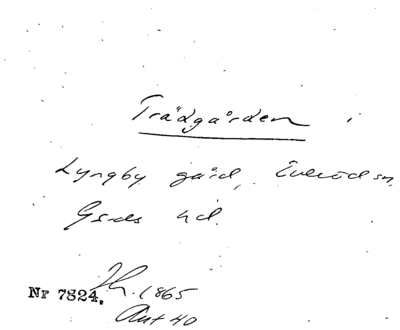 Trädgården i
Lyngby gård, Everöd sn,
Gärds hd.
Nr 7324. 1865
Ant 40